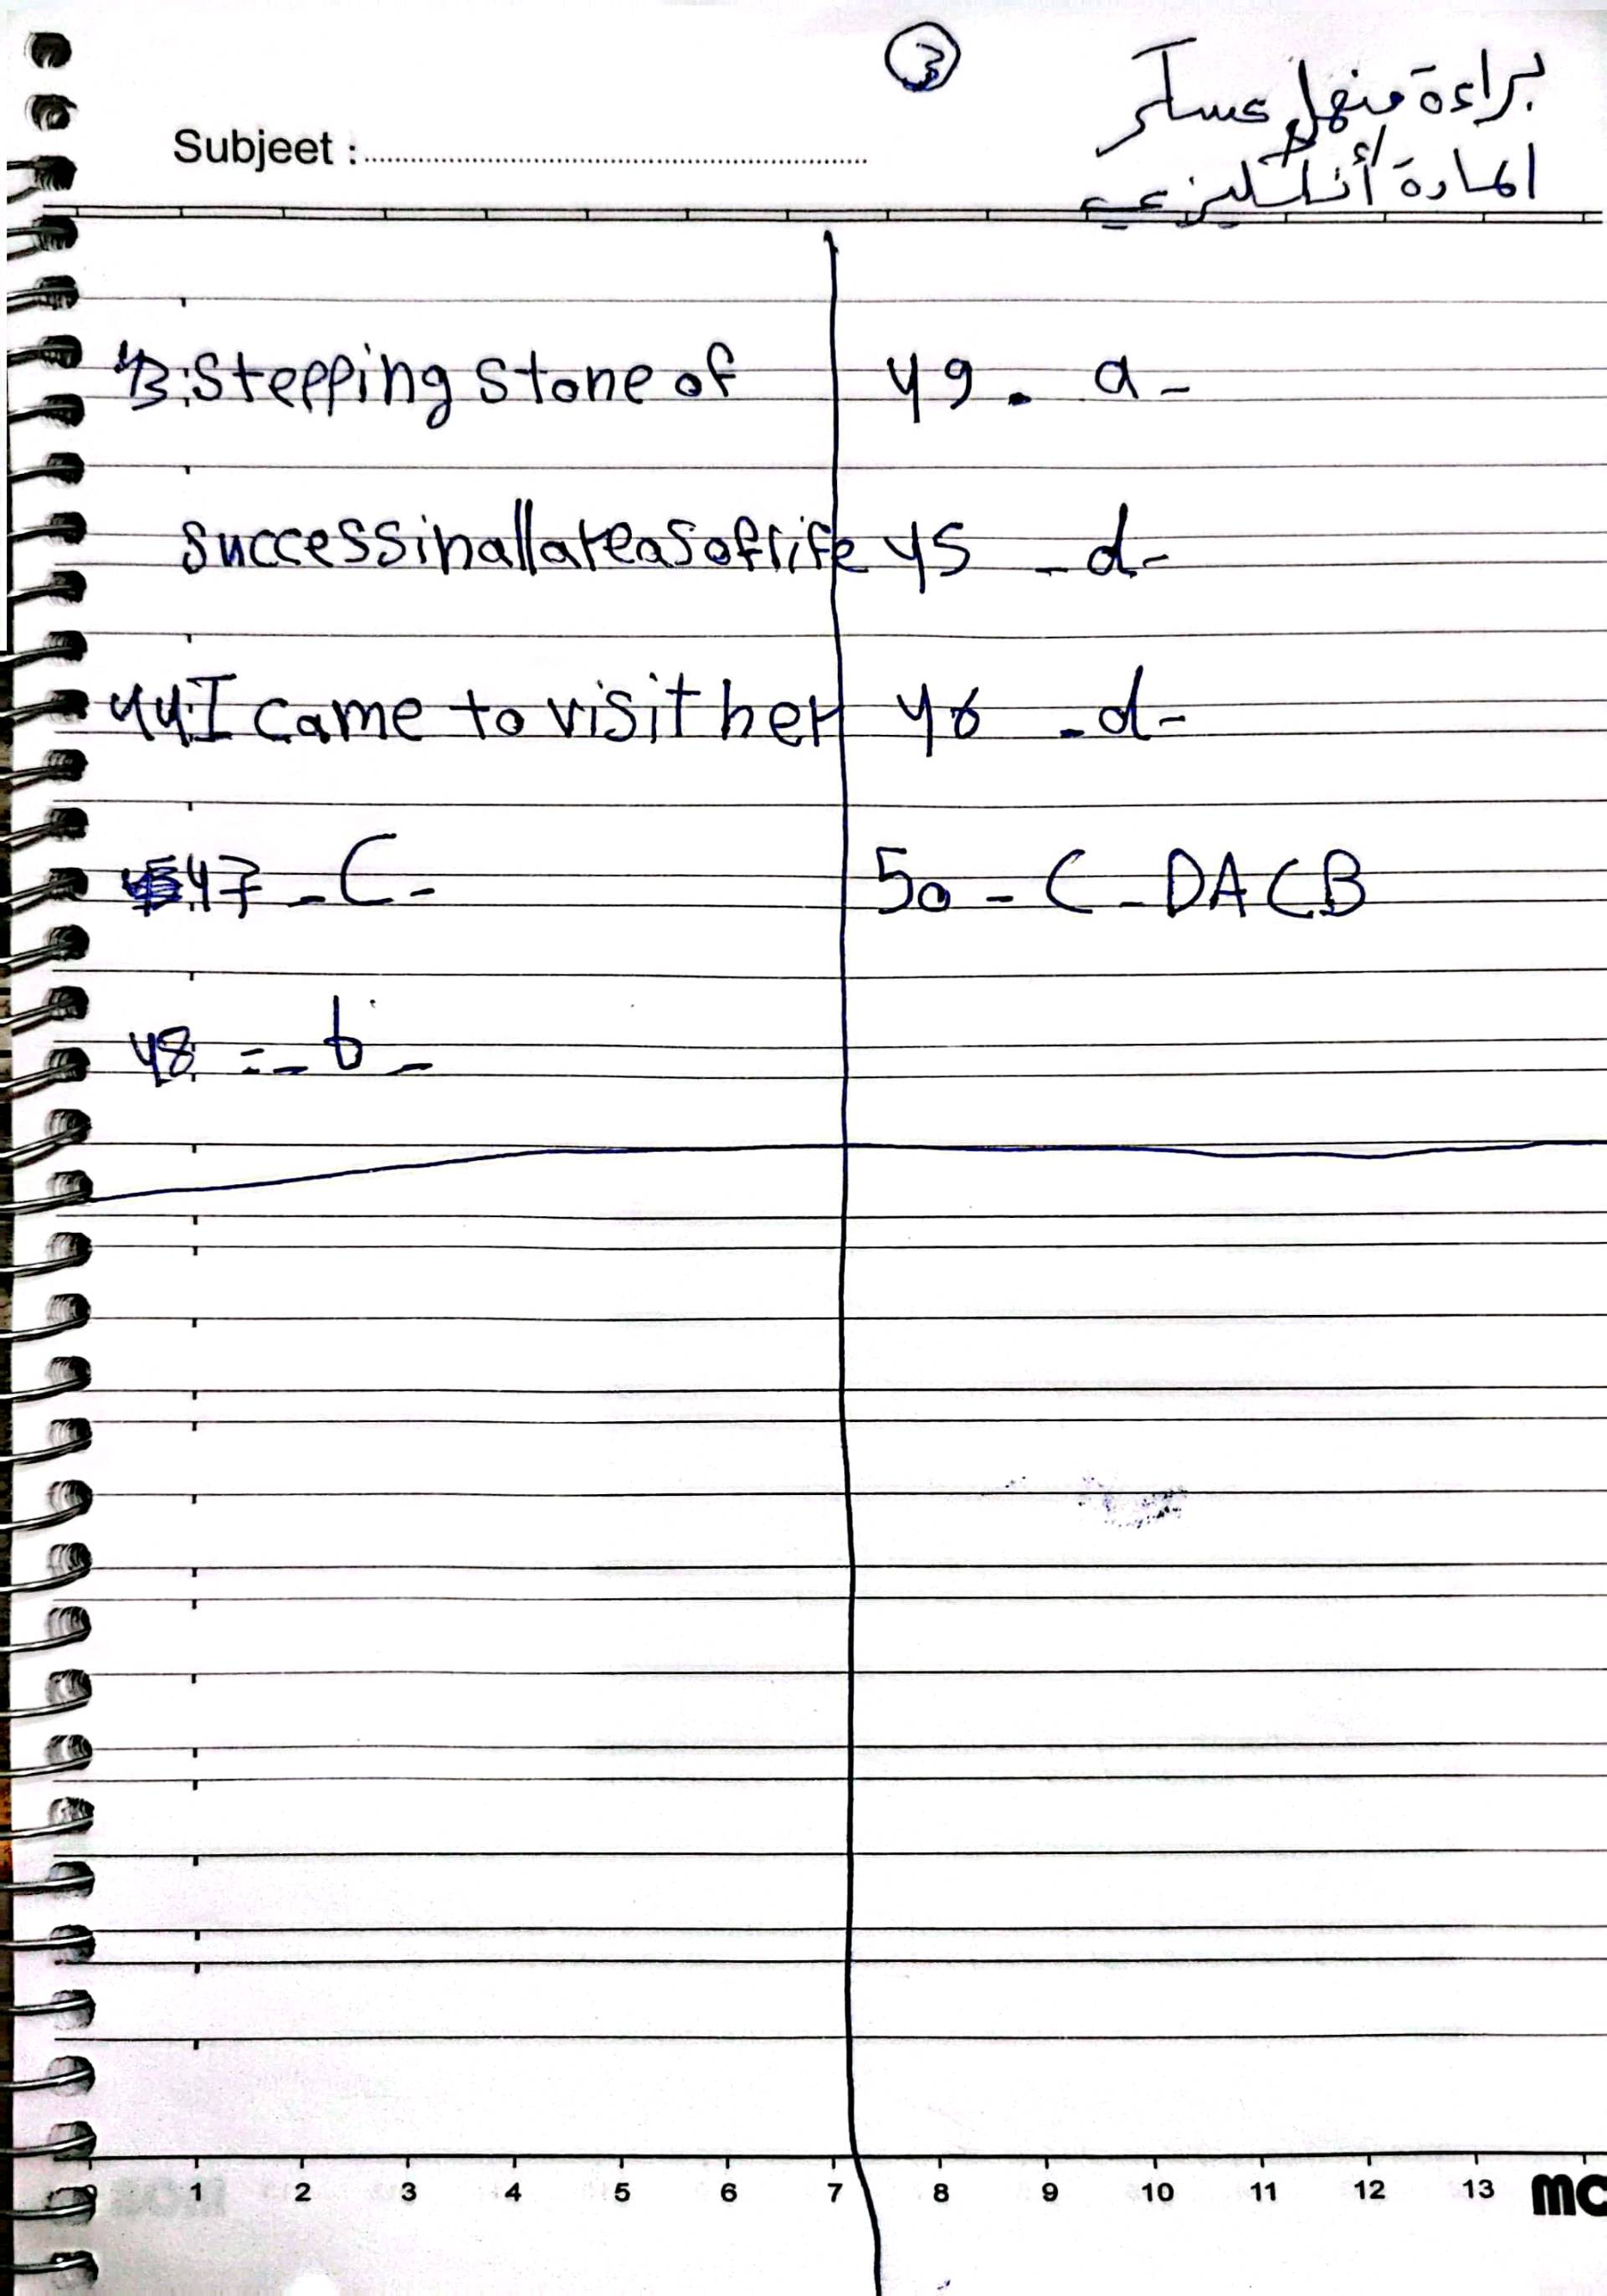 3
براءة منهل عسكر
Subjeet :
المادة/ أنكليزي
43: Stepping stone of
success in all areas of life
44: I came to visit her
47 - C -
48 = - b -
49. a -
45 - d -
46 - d -
50 - C - DACB
1 2 3 4 5 6 7 8 9 10 11 12 13 mc